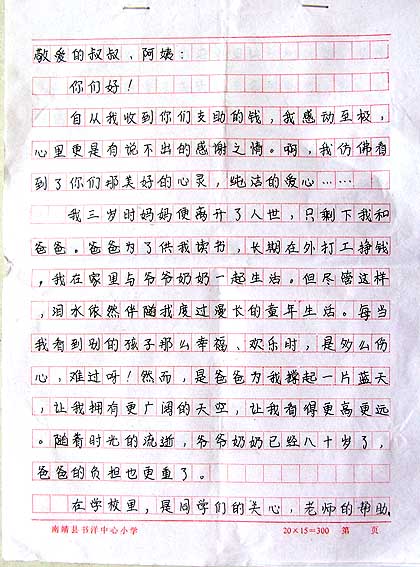 敬爱的叔叔，阿姨：
你们好！
自从我收到你们支助的钱，我感动至极，
心里更是有说不出的感谢之情。啊，我仿佛看
到了你们那美好的心灵，纯洁的爱心……
我三岁时妈妈便离开了人世，只剩下我和
爸爸。爸爸为了供我读书，长期在外打工挣钱
，我在家里与爷爷奶奶一起生活。但尽管这样
，泪水依然伴随我度过漫长的童年生活。每当
我看到别的孩子那么幸福、欢乐时，是多么伤
心，难过呀！然而，是爸爸为我撑起一片蓝天
，让我拥有更广阔的天空，让我看得更高更远
。随着时光的流逝，爷爷奶奶已经八十岁了，
爸爸的负担也更重了。
在学校里，是同学们的关心，老师的帮助，
南靖县书洋中心小学 20×15=300 第 页